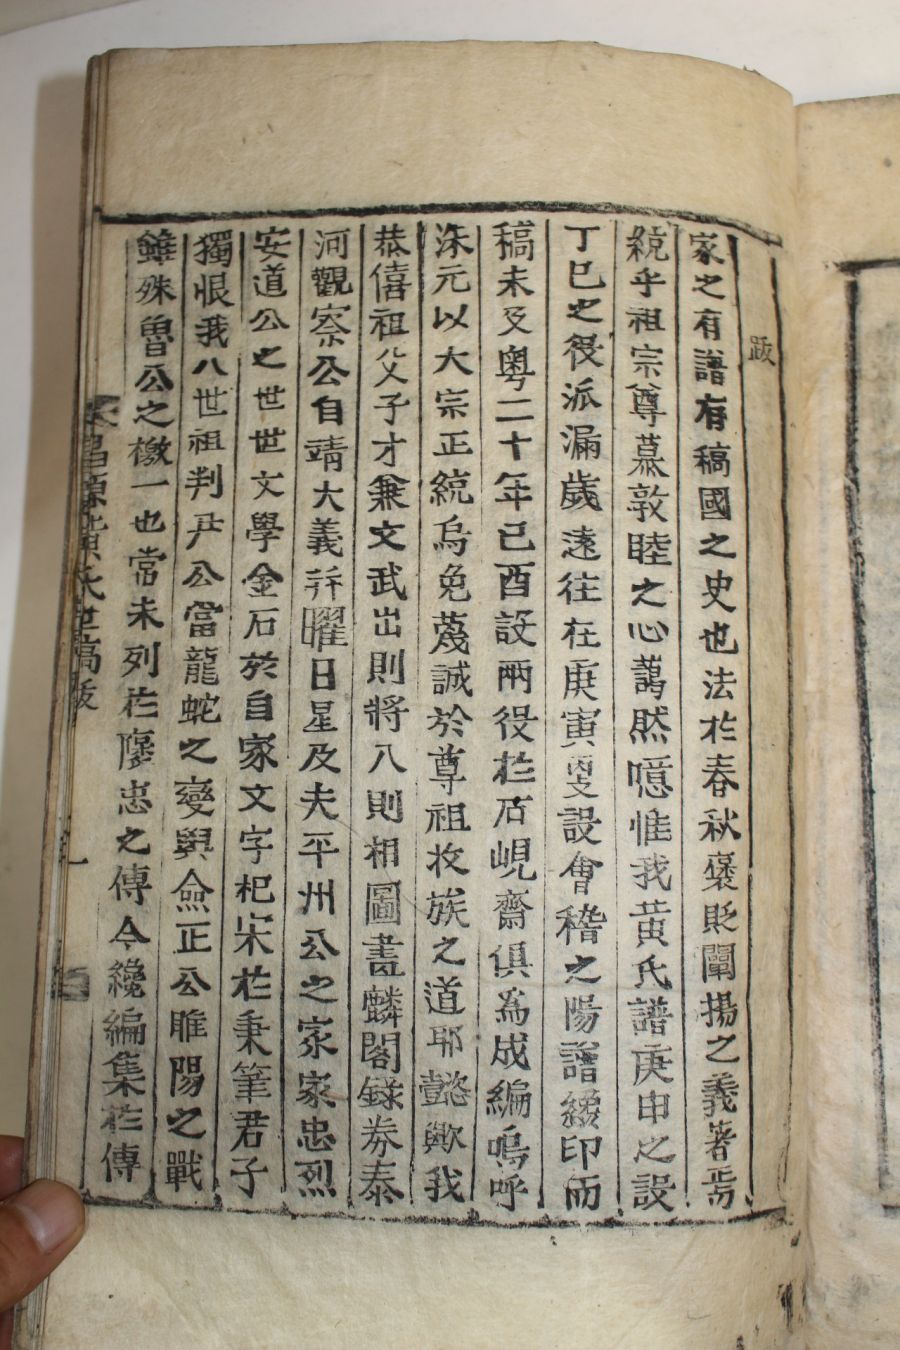 跋
家之有譜有稿國之史也法於春秋褒貶闡揚之義著焉
統乎祖宗尊慕敦睦之心藹然噫惟我黄氏譜庚申之設
丁巳之役派漏歲遠往在庚寅更設會稽之陽譜綴印而
稿未及粤二十年己酉設兩役於石峴齋俱爲成編嗚呼
洙元以大宗正統烏免蔑誠於尊祖收族之道耶懿歟我
恭僖祖父子才兼文武出則將入則相圖畫麟閣錄券泰
河觀察公自靖大義并曜日星及夫平州公之家家忠烈
安道公之世世文學金石於自家文字杞宋於秉筆君子
獨恨我八世祖判尹公當龍蛇之變與僉正公睢陽之戰
雖殊魯公之檄一也嘗未列於隆忠之傳今纔編集於傳
昌原黄氏世稿跋
一